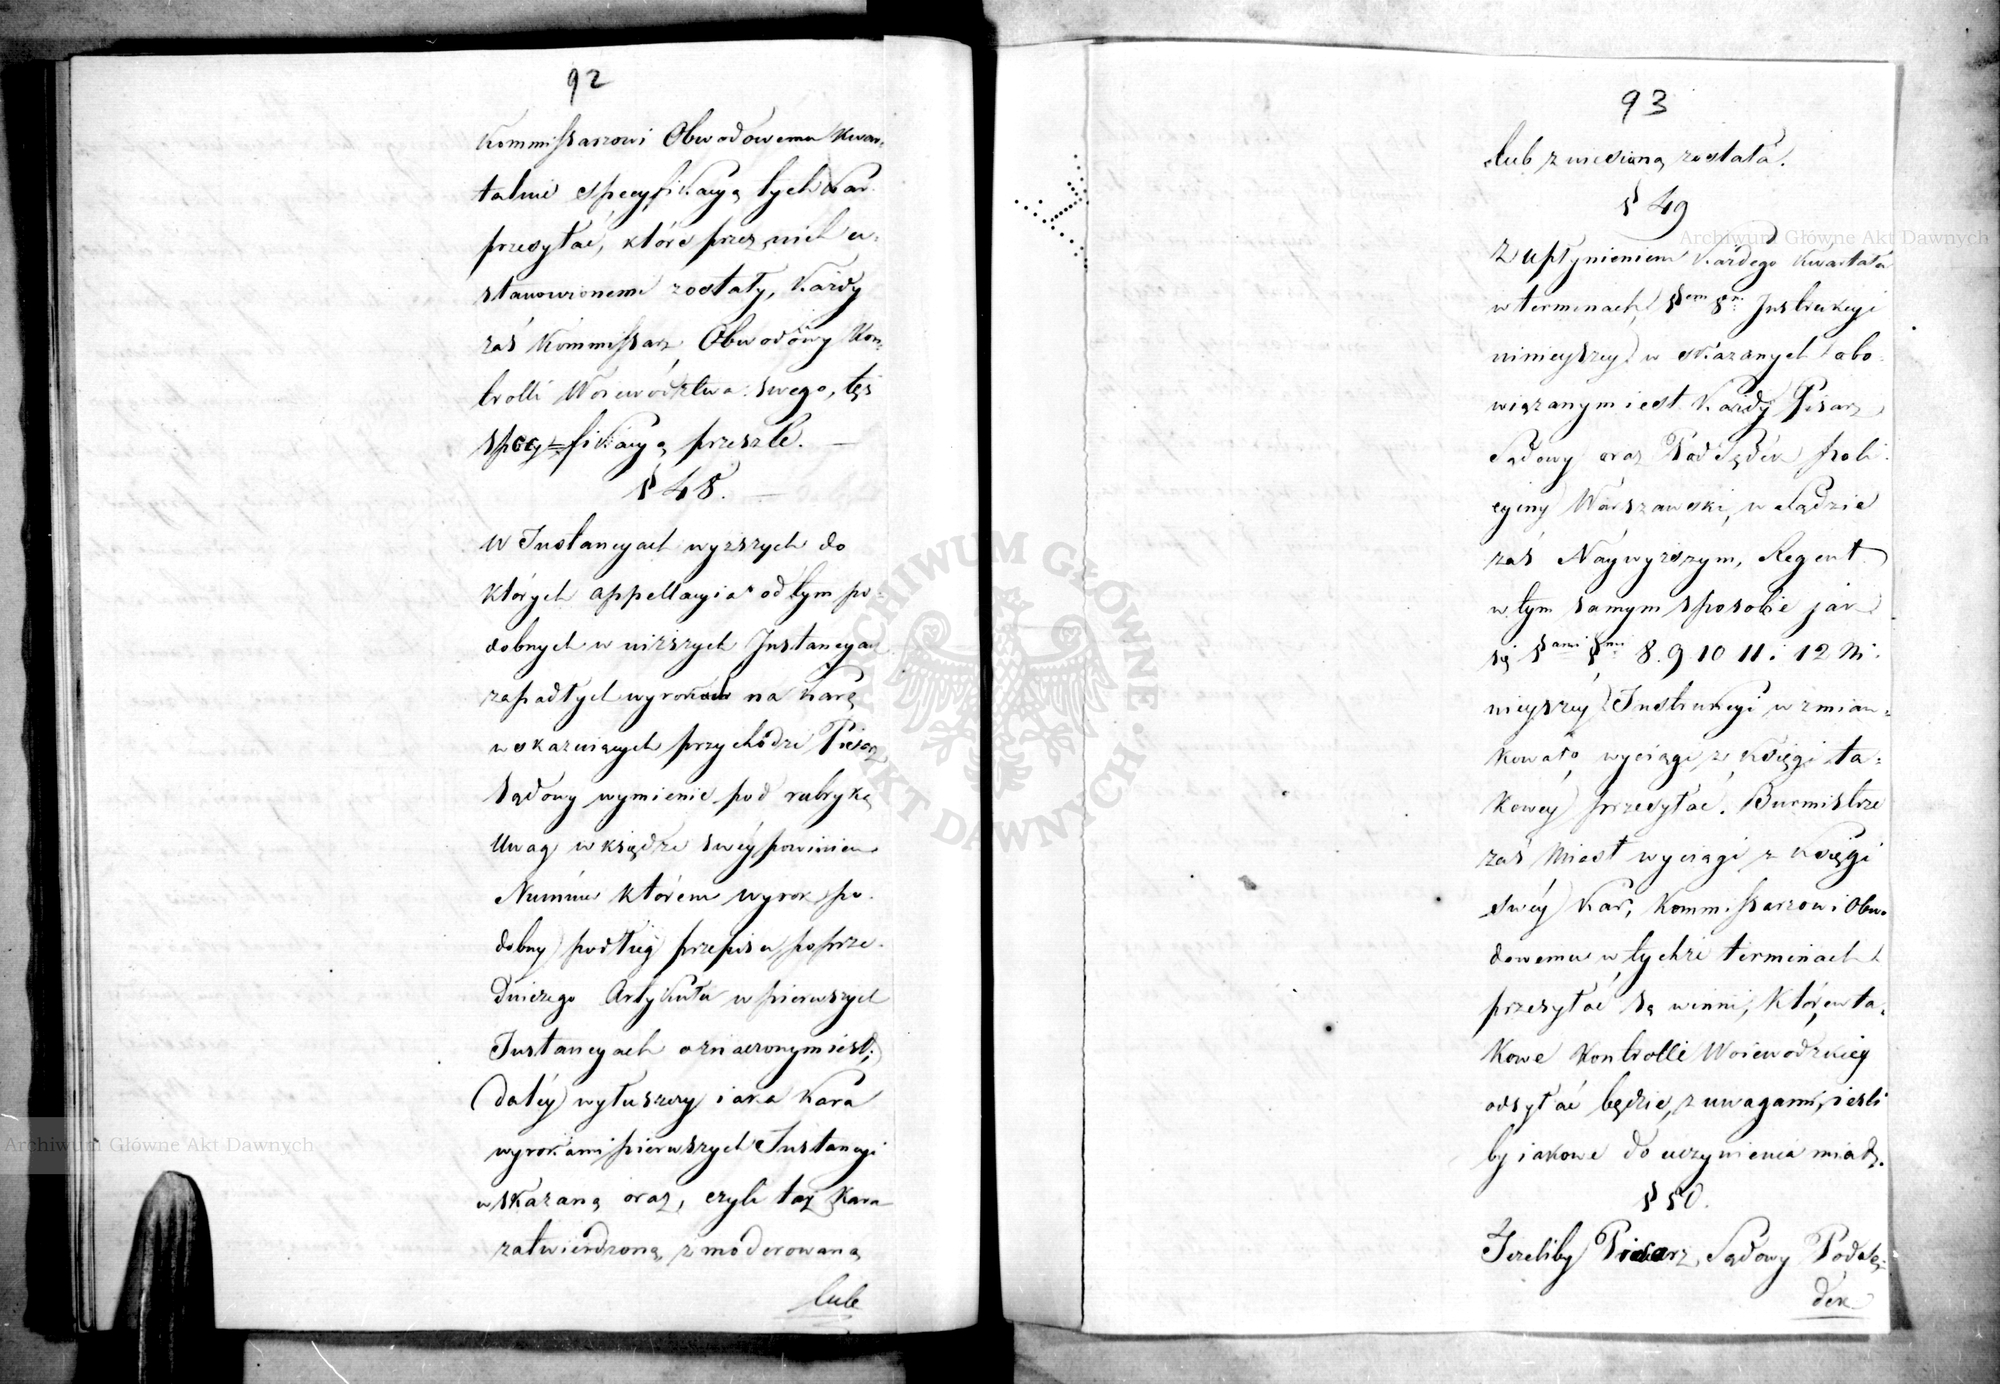 92
Kommissarzowi Obwodowemu kwar-
talnie specyfikacyą tych kar
przesyłać, które przez nich u-
stanowionemi zostały, każdy
zaś Kommissarz Obwodowy Kon-
trolli Woiewództwa swego, też
specyfikacyą przeszle. —
§ 48. —
W Instancyach wyższych do
których appellacyia od tym po-
dobnych w niższych Instancyach
zapadłych wyrokach na karę
wskazuiących przychodzi Pisarz
Sądowy wymienić pod rubryką
Uwag w księdze swéy powinien
Numer którem wyrok po-
dobny podług przepisu poprze-
dniczego Artykułu w pierwszych
Instancyach oznaczonym iest;
daléy wyłuszczy iaka kara
wyrokami pierwszych Instancyi
wskazaną oraz, czyli taż kara
zatwierdzoną, zmoderowaną
lub
93
lub zniesioną została.
§ 49
Z upłynieniem każdego kwartału
w terminach §em 8m Instrukcyi
ninieyszey wskazanych obo-
wiązanym iest każdy Pisarz
Sądowy oraz Podsędek poli-
cyiny Warszawski, w Sądzie
zaś Naywyższym, Regent
w tym samym sposobie jak
się §ami mi 8. 9 10 11 i 12 Ni-
nieyszey Instrukcyi wzmian-
kowało, wyciągi z księgi ta-
kowey przesyłać. Burmistrze
zaś Miast wyciągi z księgi
swéy kar, Kommissarzowi Obwo-
dowemu w tychże terminach
przesyłać są winni, który ta-
kowe Kontrolli Woiewodzkiey
odsyłać będzie, z uwagami, ieśli
by iakowe do uczynienia miał.
§ 50.
Jeżeliby Pisarz Sądowy Podsę-
dek